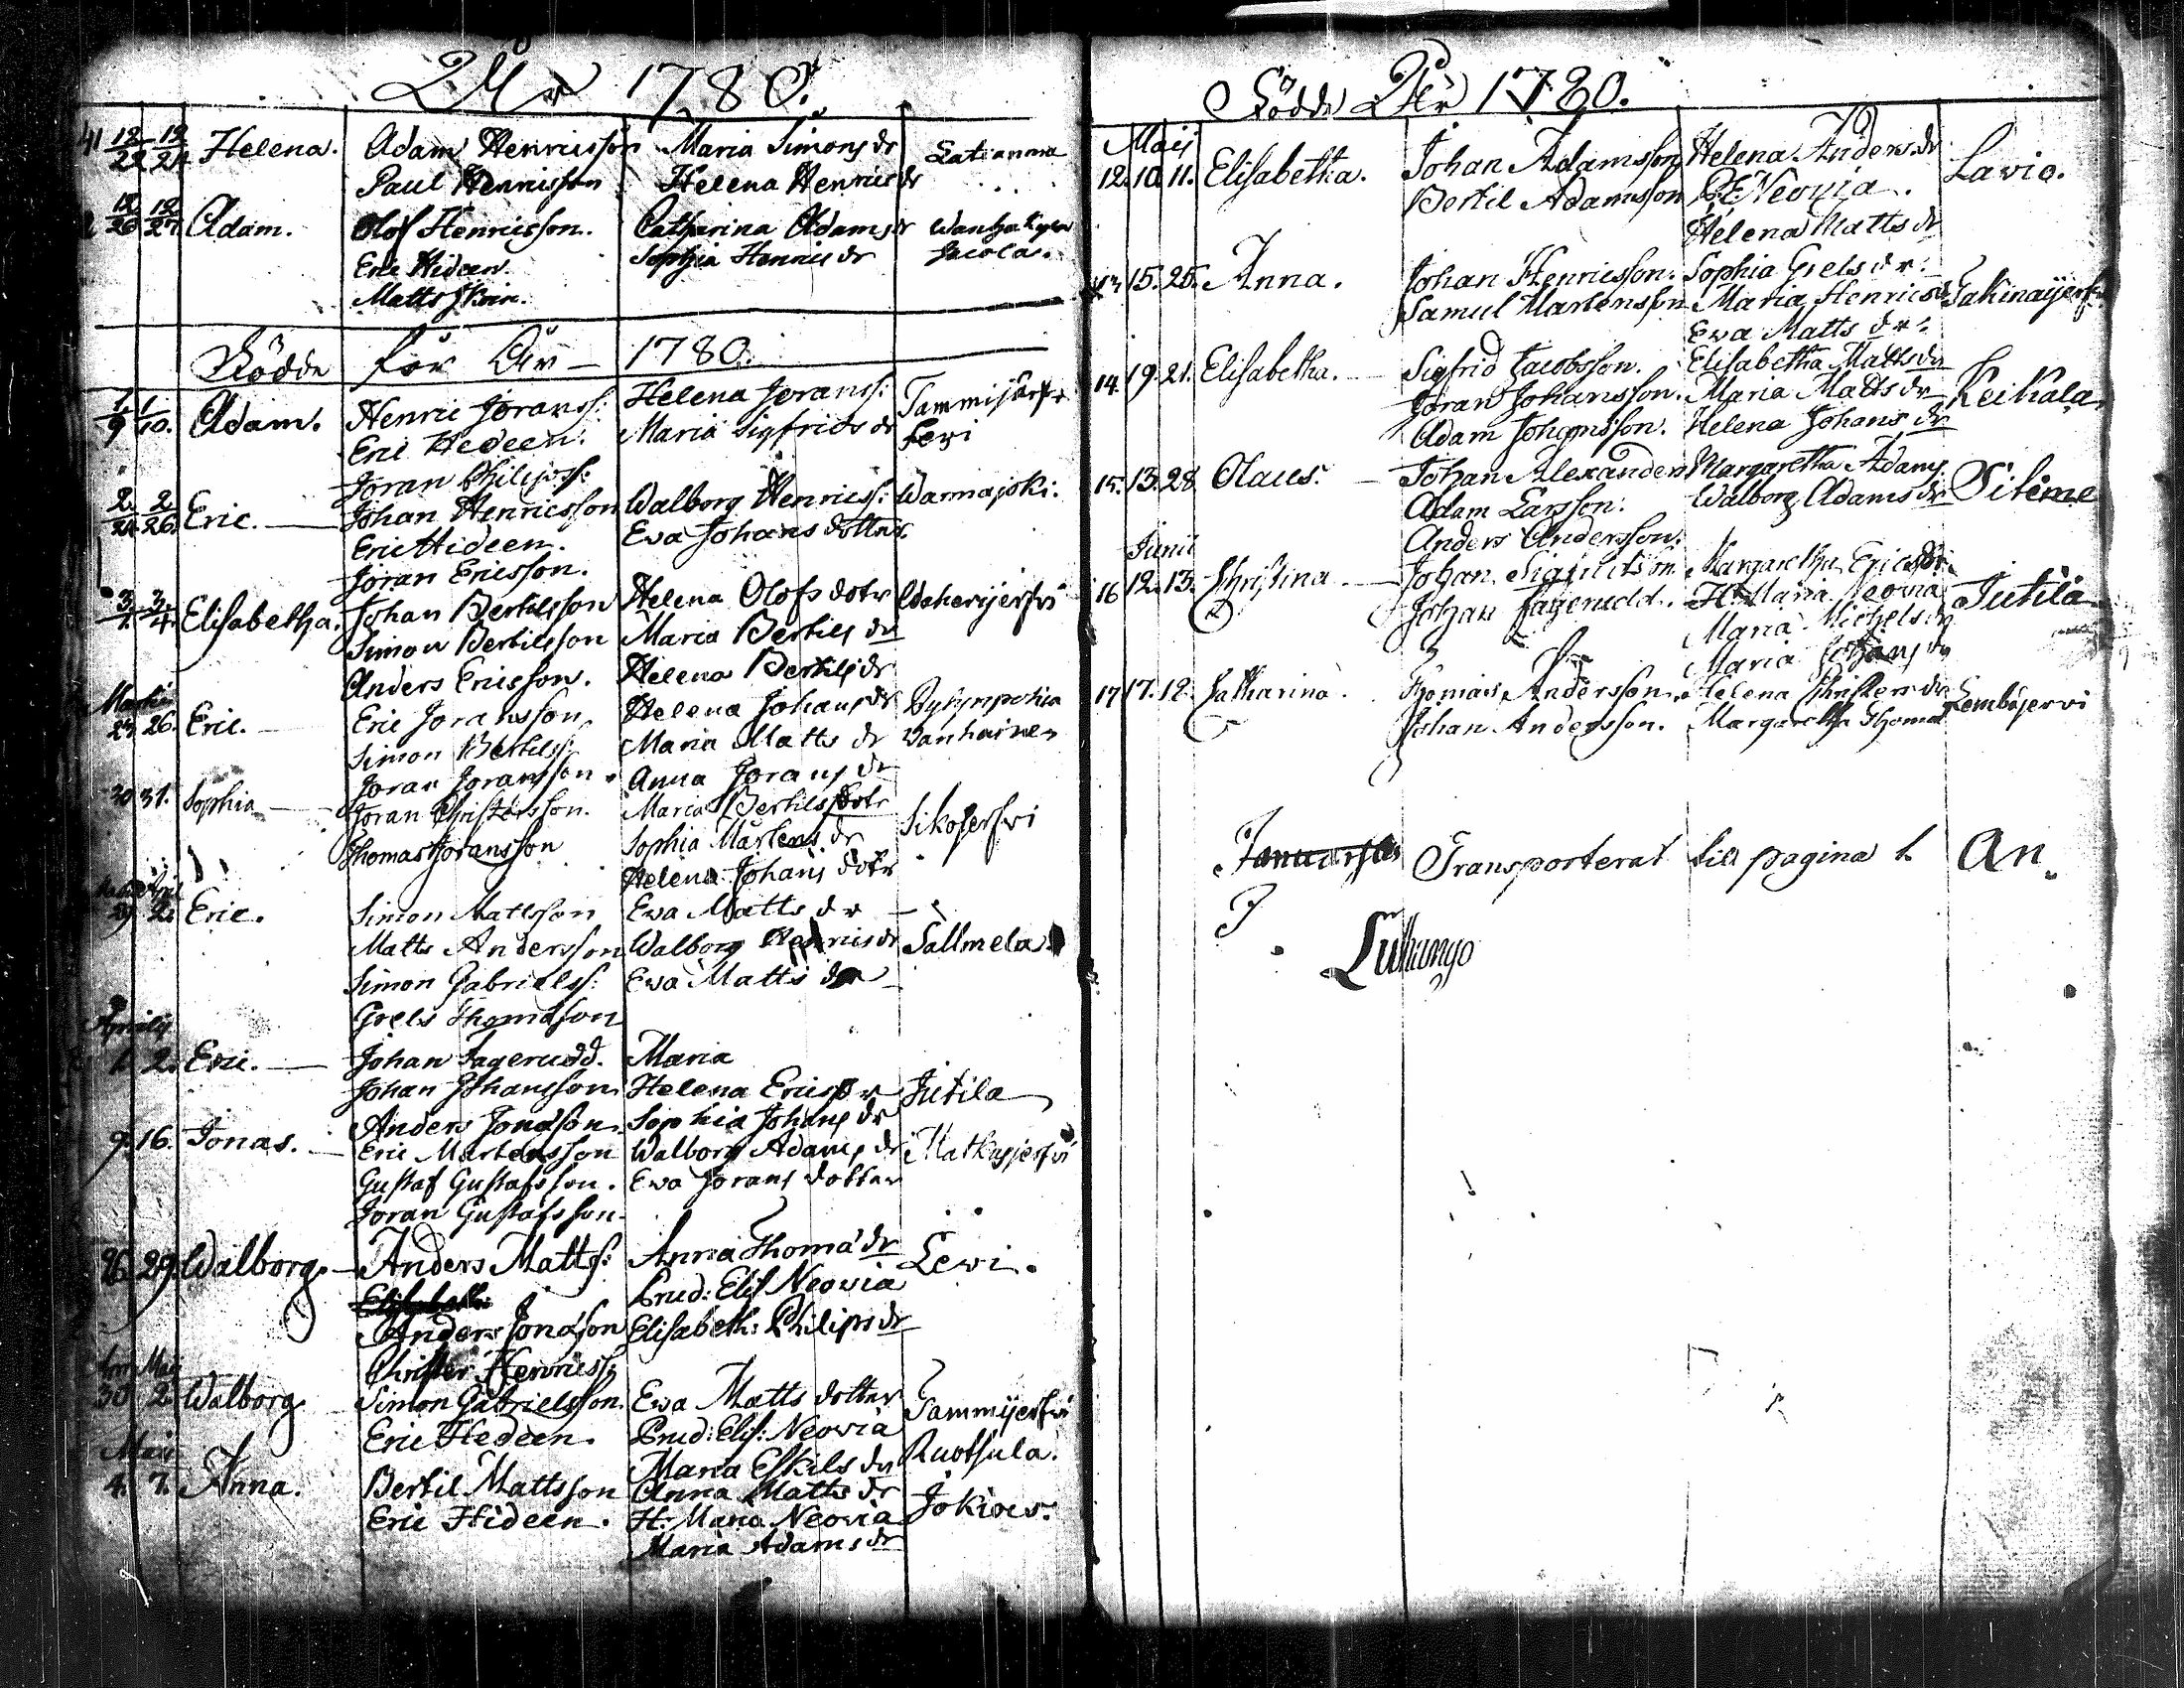 År 1780.
41 12/22 12/24 Helena. Adam Henricsson Maria Simons dr
Paul Henricsson Helena Henrics dr
12/26 12/27 Adam. Olof Henricsson. Catharina Adams dr
Eric Hideen. Sophia Henrics dr Jacola.
Matts
Födde för År 1780.
1/9 1/10. Adam. Henric Jöranss: Helena Jöranss: Tammijärfvi
Eric Hedeen. Maria Sigfrids dr Levi
Jöran Philipss:
2/24 2/26. Eric. Johan Henricsson Walborg Henricss: Warmajoki.
Eric Hideen. Eva Johans dotter.
Jöran Ericsson.
3/1. 3/4. Elisabetha. Johan Bertilsson Helena Olofs dotr
Simon Bertilsson Maria Bertils dr
Anders Ericsson. Helena Bertils dr
Martii
25 26. Eric. Eric Joransson. Helena Johans dr
Simon Bertilss: Maria Matts dr
Joran Joransson. Anna Jorans dr
30 31. Sophia Joran Christersson. Maria Bertils dotr Sikojerfvi
Thomas Joransson Sophia Martens dr
Helena Johans dotr
April
29 2. Eric. Simon Mattsson Eva Matts dr
Matts Andersson Walborg Henrics dr Sallmela
Simon Gabrielss: Eva Matts dr
Grels Thomasson
Aprilis
1. 2. Eric. Johan Fagerudd. Maria
Johan Johansson Helena Erics dr Jutila
Anders Jonasson. Sophia Johans dr
9. 16. Jonas. Eric Martensson Walborg Adams dr Matkusjerfvi
Gustaf Gustafsson. Eva Jorans dotter
Joran Gustafsson.
26. 29. Walborg. Anders Matts: Anna Thomæ dr Levi.
Prud: Elis Neovia
Anders Jonasson Elisabeth: Philips dr
Christer Henricss:
Maij
30 2. Walborg Simon Gabrielsson. Eva Matts dotter Tammijerfvi
Eric Hedeen. Prud: Elis: Neovia Ruotsula.
Maria Eskils dr
Maii
4. 7. Anna. Bertil Mattsson Anna Matts dr Jokioes.
Eric Hideen. H: Maria Neovia
Maria Adams dr
Födde År 1780.
Maij
12. 10. 11. Elisabetha. Johan Adamsson Helena Anders dr Lavio.
Bertil Adamsson P. E Neovia.
Helena Matts dr
13 15. 25. Anna. Johan Henricsson. Sophia Grels dr.
Samul Martensson Maria Henrics dr
Eva Matts dr.
14 19. 21. Elisabetha. Sigfrid Jacobsson. Elisabetha Matts dr
Joran Johansson. Maria Matts dr Keihala.
Adam Johansson. Helena Johans dr
15. 13. 28 Olaus. Johan Alexanders Margaretha Adams
Adam Larsson. Walborg Adams dr
Anders Andersson.
Junii
16 12. 13. Christina Johan Margaretha Erics dr. Jutila
Johan Fagerudd. H: Maria Neovia
Maria Michels dr
Maria Johans dr
17 17. 18. Catharina. Thomas Andersson. Helena Christers dr Lembijervi
Johan Andersson. Margaretha Thomæ
Transporterat til pagina 1. An.